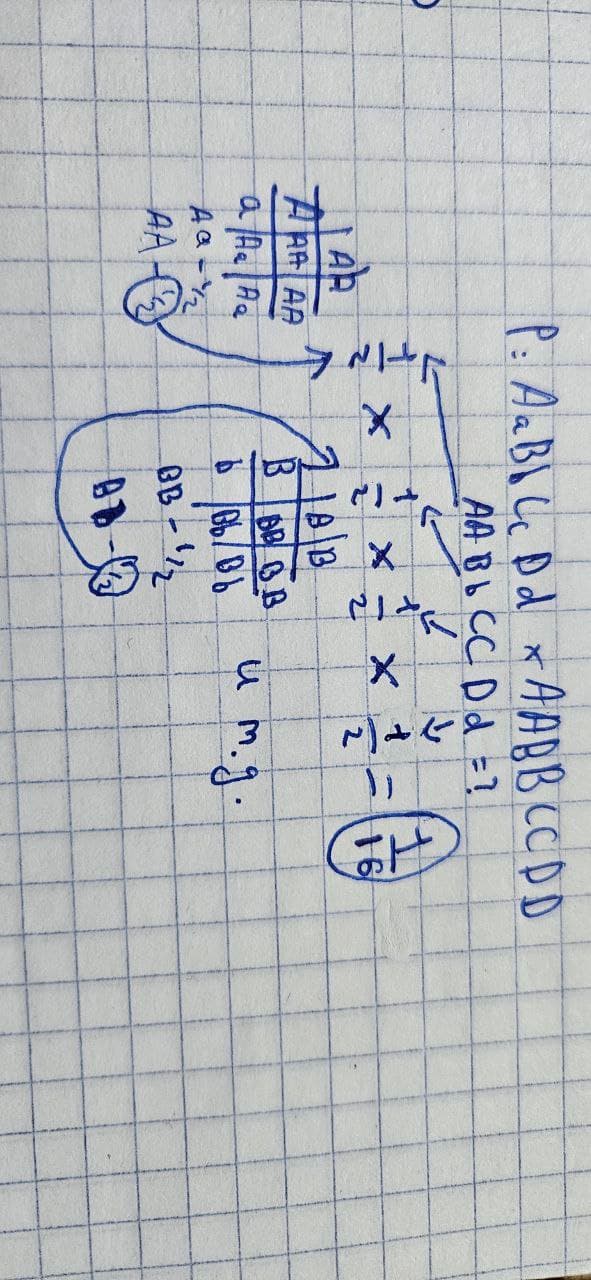 P: AaBbCcDd x AABBCCDD
AABbCCDd=?
1/2 x 1/2 x 1/2 x 1/2 = 1/16
A A
A AA AA
a Aa Aa
Aa - 1/2
AA - 1/2
B B
B BB BB
b Bb Bb
BB - 1/2
- 1/2
и т.д.